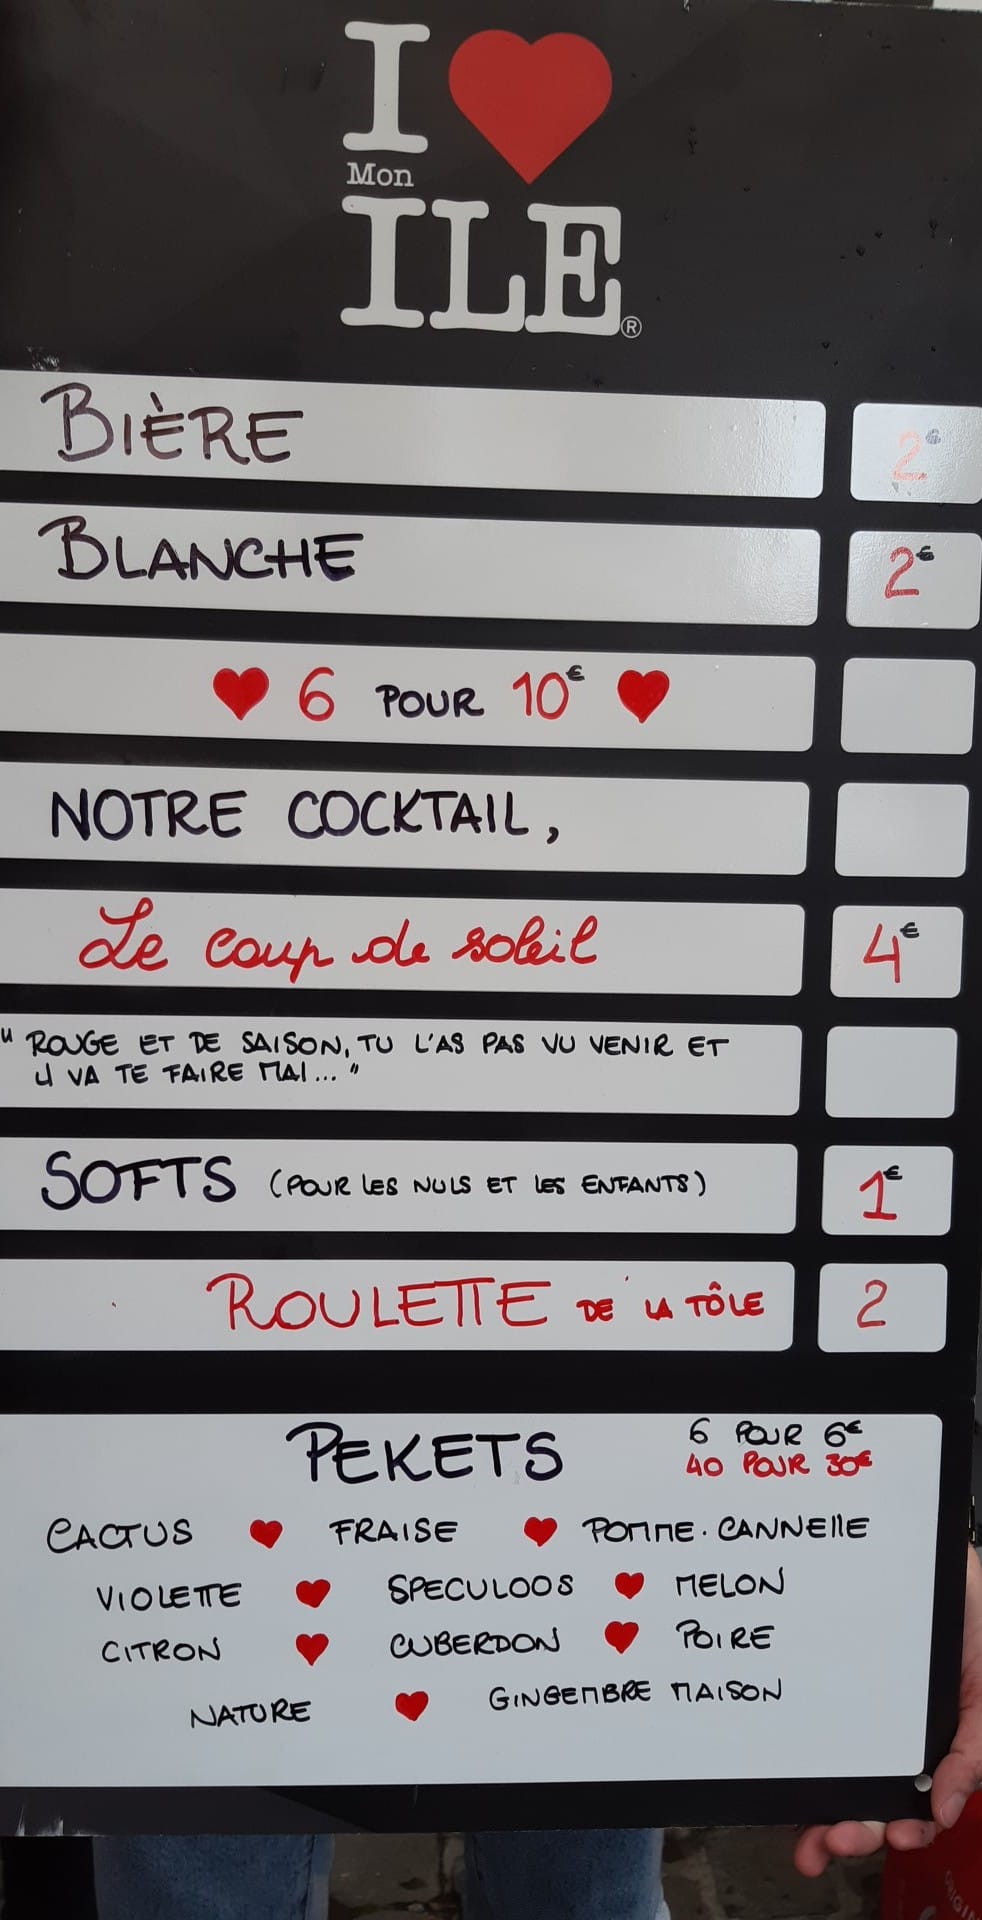 I ♥
Mon
ILE®
BIÈRE 2€
BLANCHE 2€
♥ 6 POUR 10€ ♥
NOTRE COCKTAIL,
Le coup de soleil 4€
" ROUGE ET DE SAISON, TU L'AS PAS VU VENIR ET
ÇA VA TE FAIRE MAL... "
SOFTS (POUR LES NULS ET LES ENFANTS) 1€
ROULETTE DE LA TÔLE 2
PEKETS 6 POUR 6€
40 POUR 30€
CACTUS ♥ FRAISE ♥ POMME.CANNELLE
VIOLETTE ♥ SPECULOOS ♥ MELON
CITRON ♥ CUBERDON ♥ POIRE
NATURE ♥ GINGEMBRE MAISON